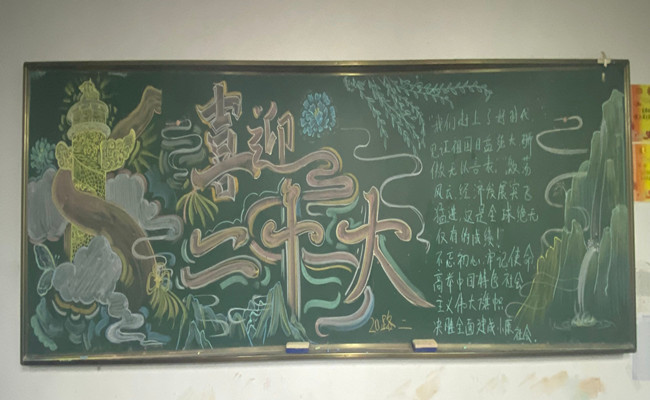 喜迎
二十大
"我们赶上了好时代
见证祖国日益强大
激荡
风云,经济发展突飞
猛进,这是全球绝无
仅有的成绩!
不忘初心,牢记使命
高举中国特色社会
主义伟大旗帜
决胜全面建成小康社会.